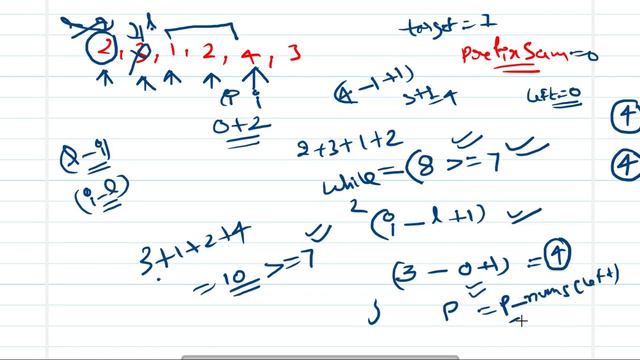 target = 7
2, 3, 1, 2, 4, 3
prefix Sum = 0
left = 0
(4 - 1 + 1)
3+1 = 4
P i
0+2
4
4
2+3+1+2
(i - l)
while = (8 >= 7
(i - l + 1)
3+1+2+4
= 10 >= 7
(3 - 0 + 1) = 4
P = P - nums(left)